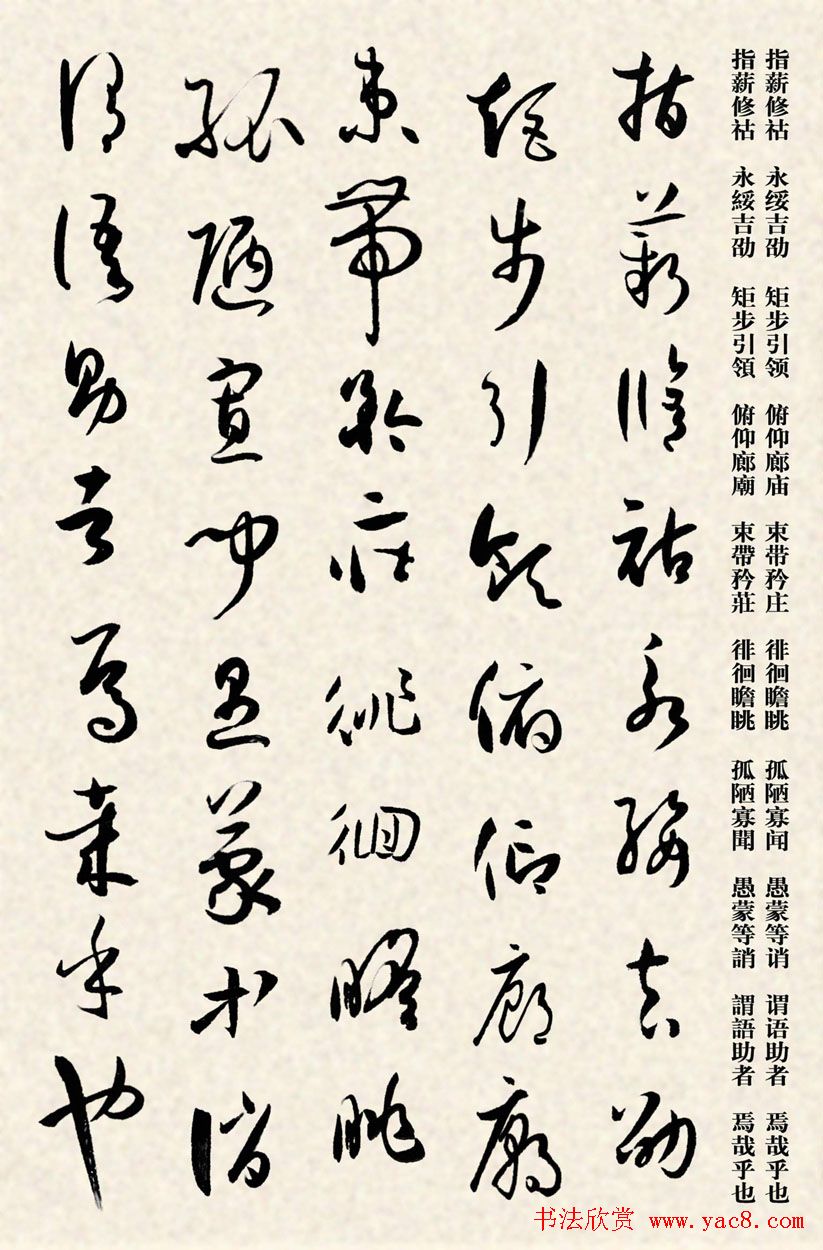 指薪修祜 永绥吉劭 矩步引领 俯仰廊庙 束带矜庄 徘徊瞻眺 孤陋寡闻 愚蒙等诮 谓语助者 焉哉乎也
指薪修祜 永綏吉劭 矩步引領 俯仰廊廟 束帶矜莊 徘徊瞻眺 孤陋寡聞 愚蒙等誚 謂語助者 焉哉乎也
指薪修祜永綏吉劭
矩步引領俯仰廊廟
束帶矜莊徘徊瞻眺
孤陋寡聞愚蒙等誚
謂語助者焉哉乎也
书法欣赏 www.yac8.com